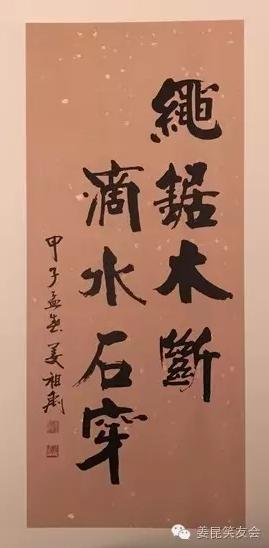 繩鋸木斷
滴水石穿
甲子孟春 姜祖禹
姜昆笑友会